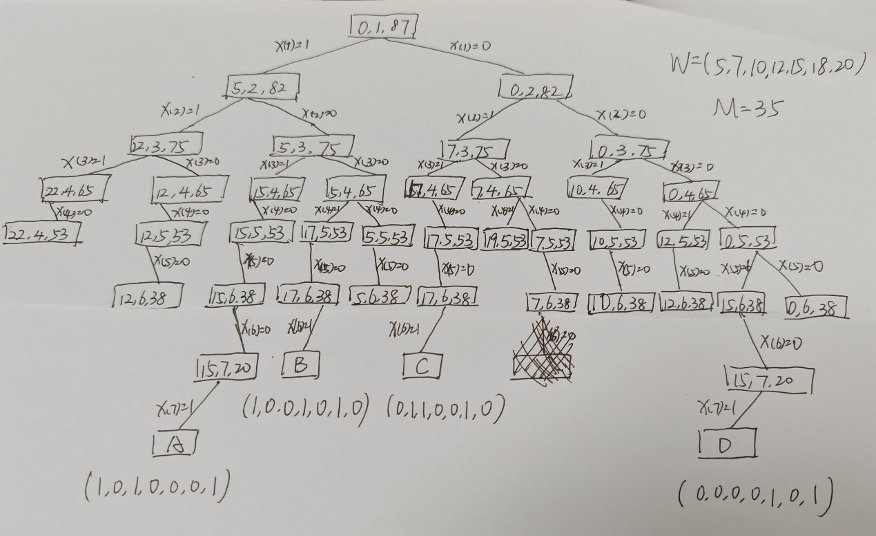 0,1,87
X(1)=1
X(1)=0
W=(5,7,10,12,15,18,20)
M=35
5,2,82
0,2,82
X(2)=1
X(2)=0
X(2)=1
X(2)=0
12,3,75
5,3,75
7,3,75
0,3,75
X(3)=1
X(3)=0
X(3)=1
X(3)=0
X(3)=1
X(3)=0
X(3)=1
X(3)=0
22,4,65
12,4,65
15,4,65
5,4,65
17,4,65
7,4,65
10,4,65
0,4,65
X(4)=0
X(4)=0
X(4)=0
X(4)=1
X(4)=0
X(4)=0
X(4)=1
X(4)=0
X(4)=0
X(4)=1
X(4)=0
22,4,53
12,5,53
15,5,53
17,5,53
5,5,53
17,5,53
19,5,53
7,5,53
10,5,53
12,5,53
0,5,53
X(5)=0
X(5)=0
X(5)=0
X(5)=0
X(5)=0
X(5)=0
X(5)=0
X(5)=0
X(5)=0
12,6,38
15,6,38
17,6,38
5,6,38
17,6,38
7,6,38
10,6,38
12,6,38
15,6,38
0,6,38
X(6)=0
X(6)=1
X(6)=1
X(6)=0
15,7,20
B
C
15,7,20
X(7)=1
(1,0,0,1,0,1,0)
(0,1,1,0,0,1,0)
X(7)=1
A
D
(1,0,1,0,0,0,1)
(0,0,0,0,1,0,1)